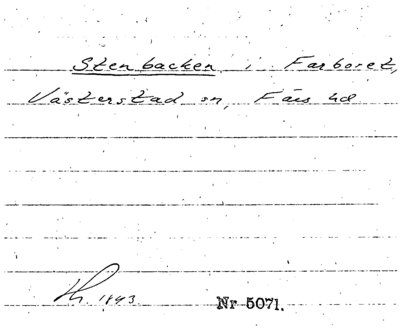 Stenbacken i Farboret,
Västerstad sn, Färs hd
Th. 1943. Nr 5071.